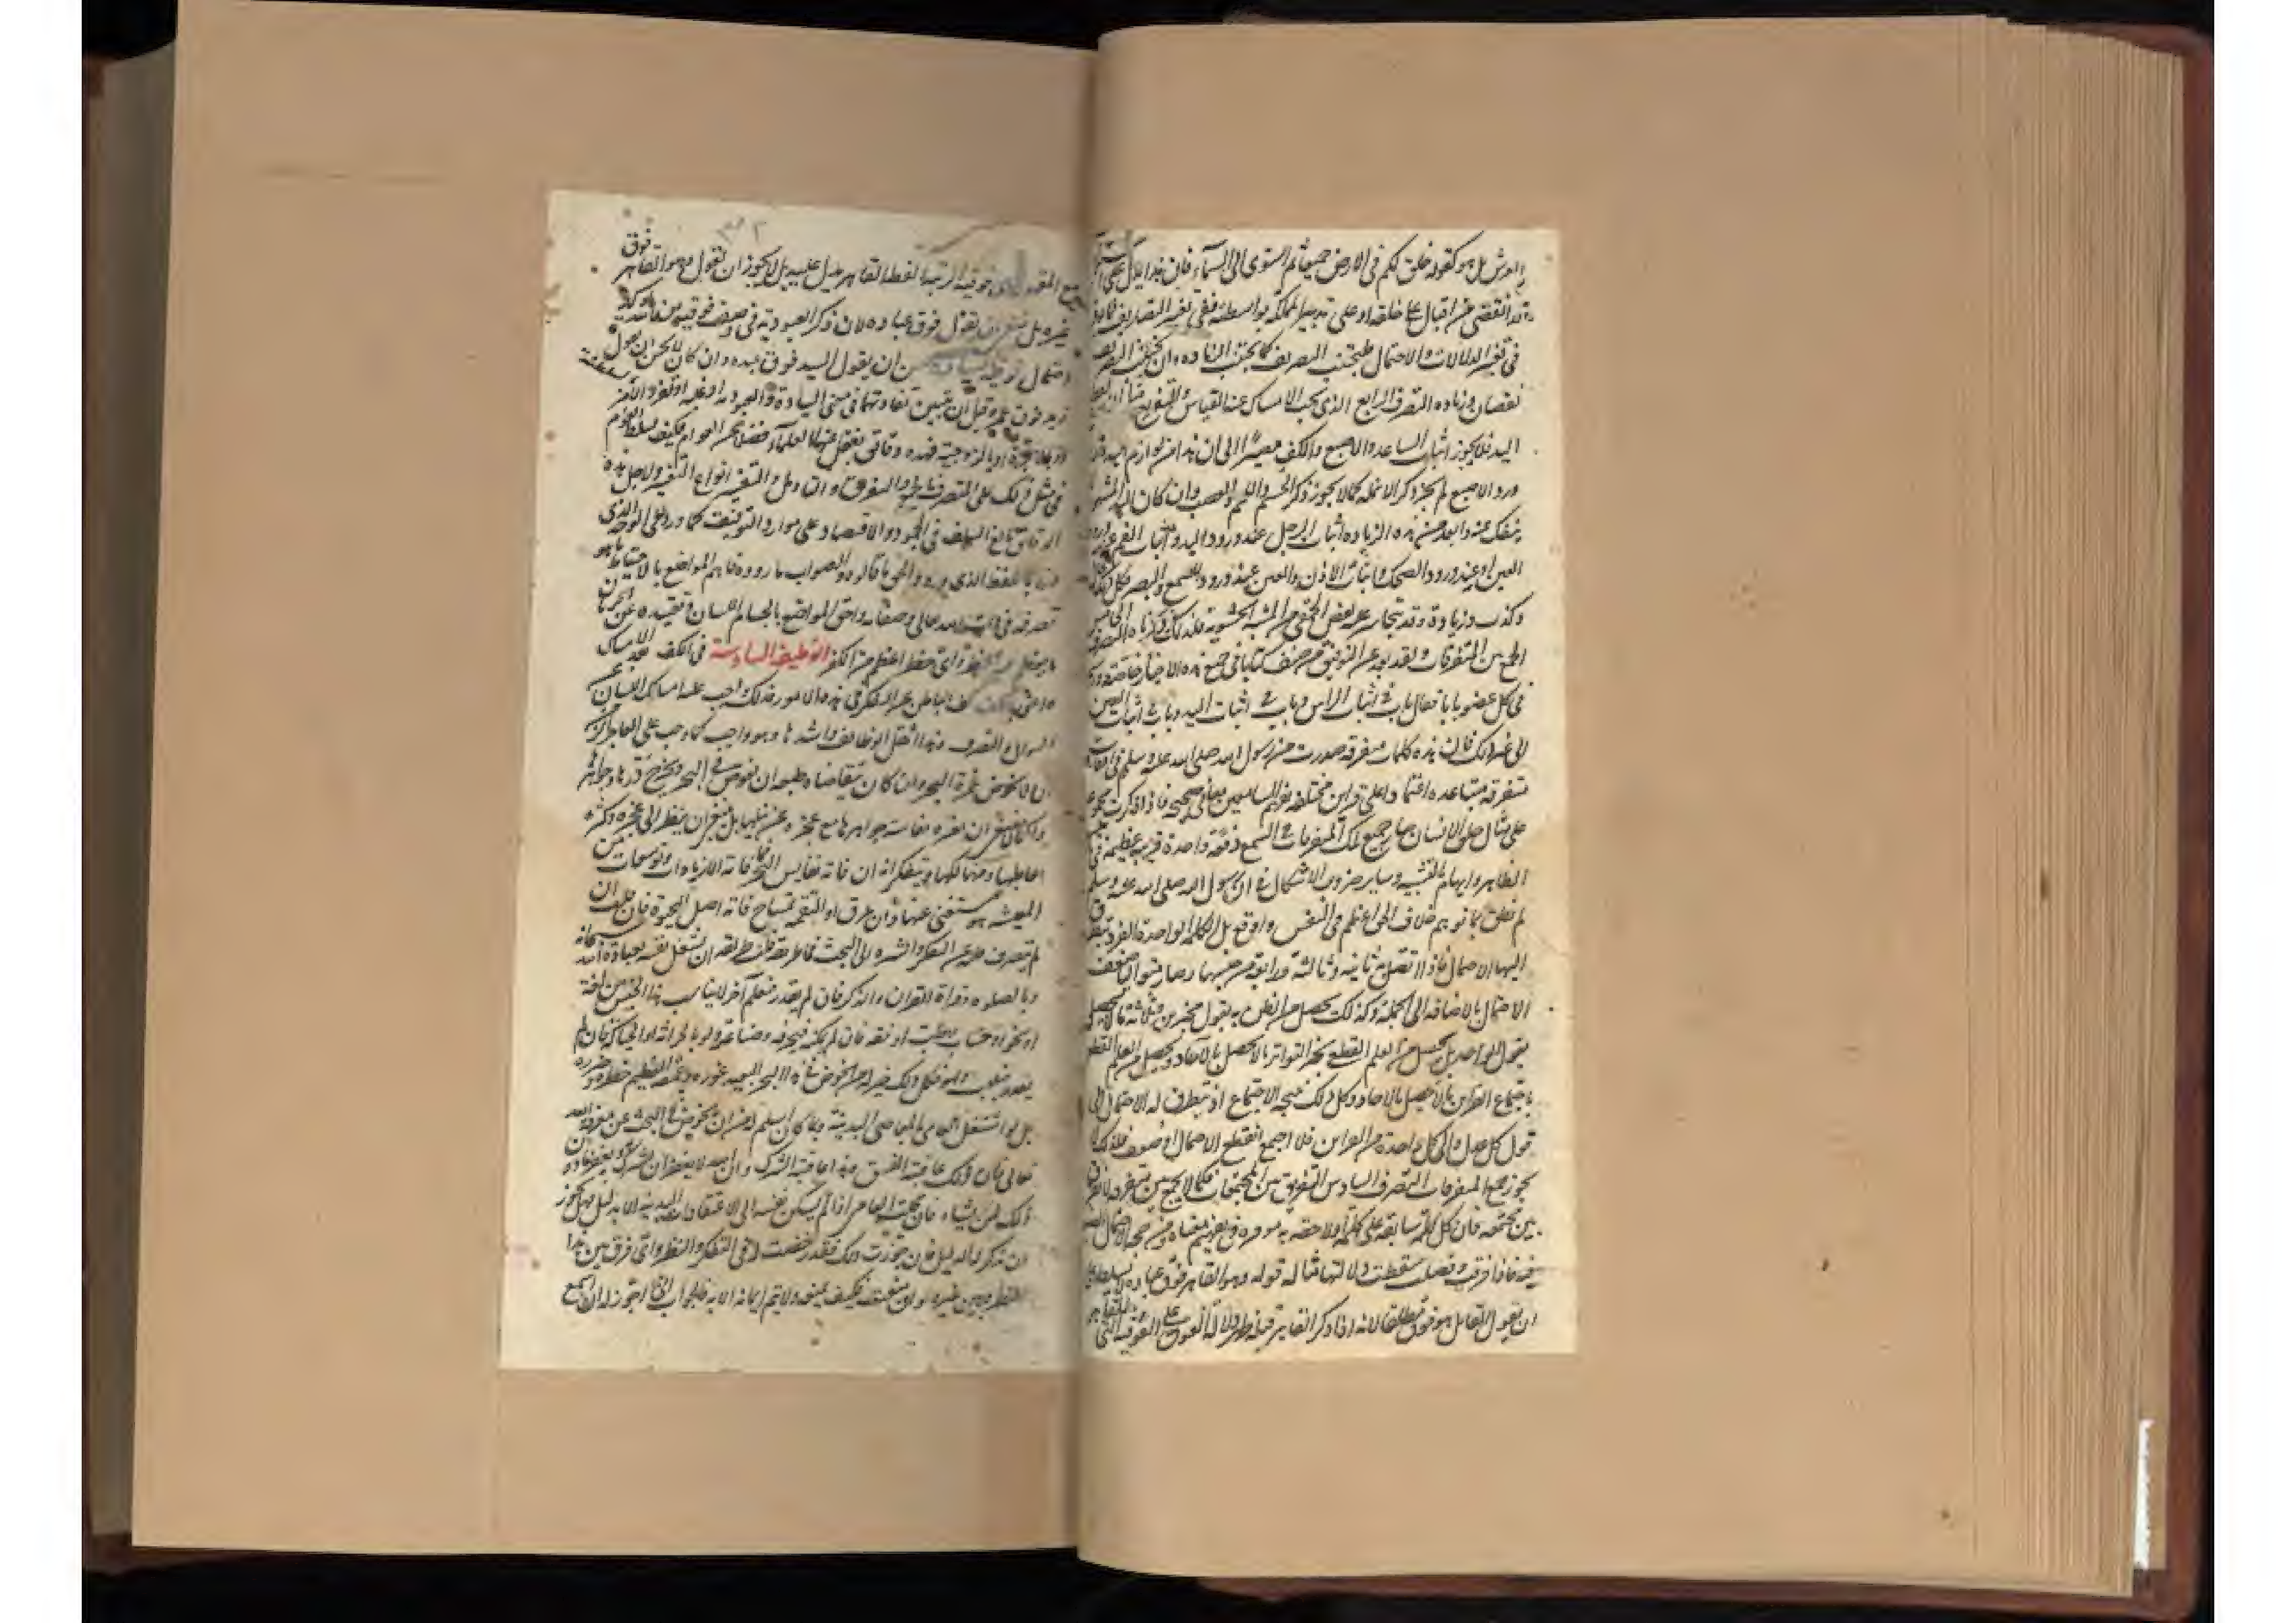 العرش بل هو كقوله خلق لكم ما فى الارض جميعا ثم استوى الى السماء فان هذا يدل على
قد انقضى من اقبال على خلقه او على تدبير المملكة بواسطته ففى تغير التصاريف ما يوقع
فى تغير الدلالات والاحتمال فليجتنب التصريف كما يجتنب الزياده فان تحت التصريف
نقصان وزياده التصرف الرابع الذى يجب الامساك عنه القياس والتفريع مثل ان يرد لفظ
اليد فلا يجوز اثبات الساعد والاصبع والكف مصيرا الى ان هذا من لوازم اليد واذا
ورد الاصبع لم يجز ذكر الانمله كما لا يجوز ذكر الجسم واللحم والعصب وان كان اليد المشهوره
ينفك عنه وابعد من هذه الزياده اثبات الرجل عند ورود اليد واثبات الفم عند ورود
العين او عند ورود الضحك واثبات الاذن والعين عند ورود السمع والبصر وكل ذلك محال
وكذب وزيادة وقد يتجاسر عليه بعض الحمقى من المشبهة الحشوية فلذلك ذكرناه التصرف الخامس
الجمع بين المتفرقات ولقد بعد عن التوفيق من صنف كتابا فى جمع هذه الاخبار خاصة ورسم
فى كل عضو بابا فقال باب فى اثبات الراس وباب فى اثبات اليد وباب فى اثبات العين
الى غير ذلك فان هذه كلمات متفرقه صدرت من رسول الله صلى الله عليه وسلم فى اوقات
متفرقه متباعده اعتمادا على قراين مختلفه تفهم السامعين معانى صحيحه فاذا ذكرت مجموعة
على مثال خلق الانسان صار جميع تلك المتفرقات فى السمع دفعة واحدة قرينه عظيمه فى تاكيد
الظاهر وايهام التشبيه وصار الاشكال فى ان رسول الله صلى الله عليه وسلم
لم نطق بما يوهم خلاف الحق اعظم فى النفس واوقع بل الكلمه الواحدة الفرده يتطرق
اليها الاحتمال فاذا اتصل به ثانيه وثالثة ورابعة من جنسها وصار متواليا ضعف
الاحتمال بالاضافه الى الجملة وكذلك يحصل من الظن بقول مخبرين وثلاثة ما لا يحصل
بقول الواحد بل يحصل من العلم القطعى بخبر التواتر ما لا يحصل بالاحاد ويحصل من العلم القطعى
باجتماع القراين ما لا يحصل بالاحاد وكل ذلك نتيجه الاجتماع اذ يتطرق له الاحتمال الى
قول كل عدل والى كل واحدة من القراين فاذا اجتمع انقطع الاحتمال او ضعف فلذلك لا
يجوز جمع المتفرقات التصرف السادس التفريق بين المجتمعات فكما لا يجمع بين متفرقه لا يفرق
بين مجتمعه فان كل كلمة سابقه على كلمة او لاحقه به موثره فى تفهيم معناه ومرجحه الاحتمال
فيه فاذا فرقت وفصلت سقطت دلالتها مثاله قوله وهو القاهر فوق عباده لا تسلط على
ان يقول القائل هو فوق مطلقا لانه اذا ذكر القاهر قبله ظهر دلالة الفوق على الفوقيه التى للقاهر
مع المقهور وهى فوقية الرتبة ولفظ القاهر يدل عليه بل لا يجوز ان نقول وهو القاهر فوق
غيره بل ينبغى ان نقول فوق عباده لان ذكر العبودية فى وصف فوقيه من تاكيد
احتمال فوقية السيادة اذ يحسن ان يقول السيد فوق عبده وان كان لا يحسن ان يقول
زيد فوق عمرو قبل ان يتبين تفاوتهما فى معنى السيادة والعبودية او غلبة او نفوذ الامر
او بالابوة او بالزوجية فهذه دقائق يغفل عنها العلماء فضلا عن العوام فكيف يسلط العوام
فى مثل ذلك على التصرف بالجمع والتفريق والتاويل والتفسير وانواع التغيير ولاجل هذه
الدقائق بالغ السلف فى الجمود والاقتصار على موارد التوقيف كما ورد على الوجه الذى
ورد باللفظ الذى ورد والحق ما قالوه والصواب ما راوه فاهم المواضع بالاحتياط ما هو
تصرف فى ذات الله تعالى وصفاته واحق المواضع بالجام اللسان وتقييده عن الجريان
ما يعظم فيه الخطر واى خطر اعظم من الكفر الوظيفة السادسة فى الكف بعد الامساك
واعنى بالكف كف الباطن عن التفكر فى هذه الامور فذلك واجب عليه امساك اللسان عن
السوال والتصرف وهذا اثقل الوظائف واشدها وهو واجب كما وجب على العاجز الزمن
ان لا يخوض غمرة البحر وان كان يتقاضاه طبعه ان يغوص فى البحر ويخرج دررها وجواهرها
ولكن لا ينبغى ان يغره نفاسة جواهرها مع عجزه عن نيلها بل ينبغى ان ينظر الى عجزه وكثرة
معاطبها ومهالكها ويتفكر انه ان فاته نفايس البحر فما فاته الا زيادات وتوسعات من
المعيشه هو مستغنى عنها وان غرق او التقمه تمساح فاته اصل الحيوة فان قلت ان
لم ينصرف قلبه عن التفكر والتشره الى البحث فما طريقه قلنا طريقه ان يشغل نفسه بعبادة الله سبحانه
وبالصلوه وقراة القران والذكر فان لم يقدر فبعلم آخر لا يناسب هذا الجنس من لغة
او نحو او حساب او طب او فقه فان لم يمكنه فبحرفه وصناعة ولو بالحراثة والحياكة فان لم
يقدر فبلعب ولهو فكل ذلك خير له من الخوض فى هذا البحر البعيد غوره وعمقه العظيم خطره وضرره
بل لو اشتغل العامى بالمعاصى البدنية ربما كان اسلم له من ان يخوض فى البحث عن معرفة الله
تعالى فان ذلك عاقبته الفسق وهذا عاقبته الشرك وان الله لا يغفر ان يشرك به ويغفر ما دون
ذلك لمن يشاء فان قلت العامى اذا لم تسكن نفسه الى الاعتقادات الدينيه الا بدليل فهل يجوز
ان يذكر له الدليل فان جوزت ذلك فقد رخصت له فى التفكر والنظر واى فرق بين هذا
النظر وبين غيره وان منعت فكيف تمنعه ولا يتم ايمانه الا به فالجواب انى اجوز له ان يسمع